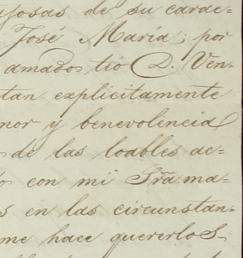 fosas de su carac-
José María; por
amados tio D. Ven-
tan explicitamente
nor y benevolencia
de las loables ac-
con mi Sra ma-
s en las circunstan-
me hace quererlos